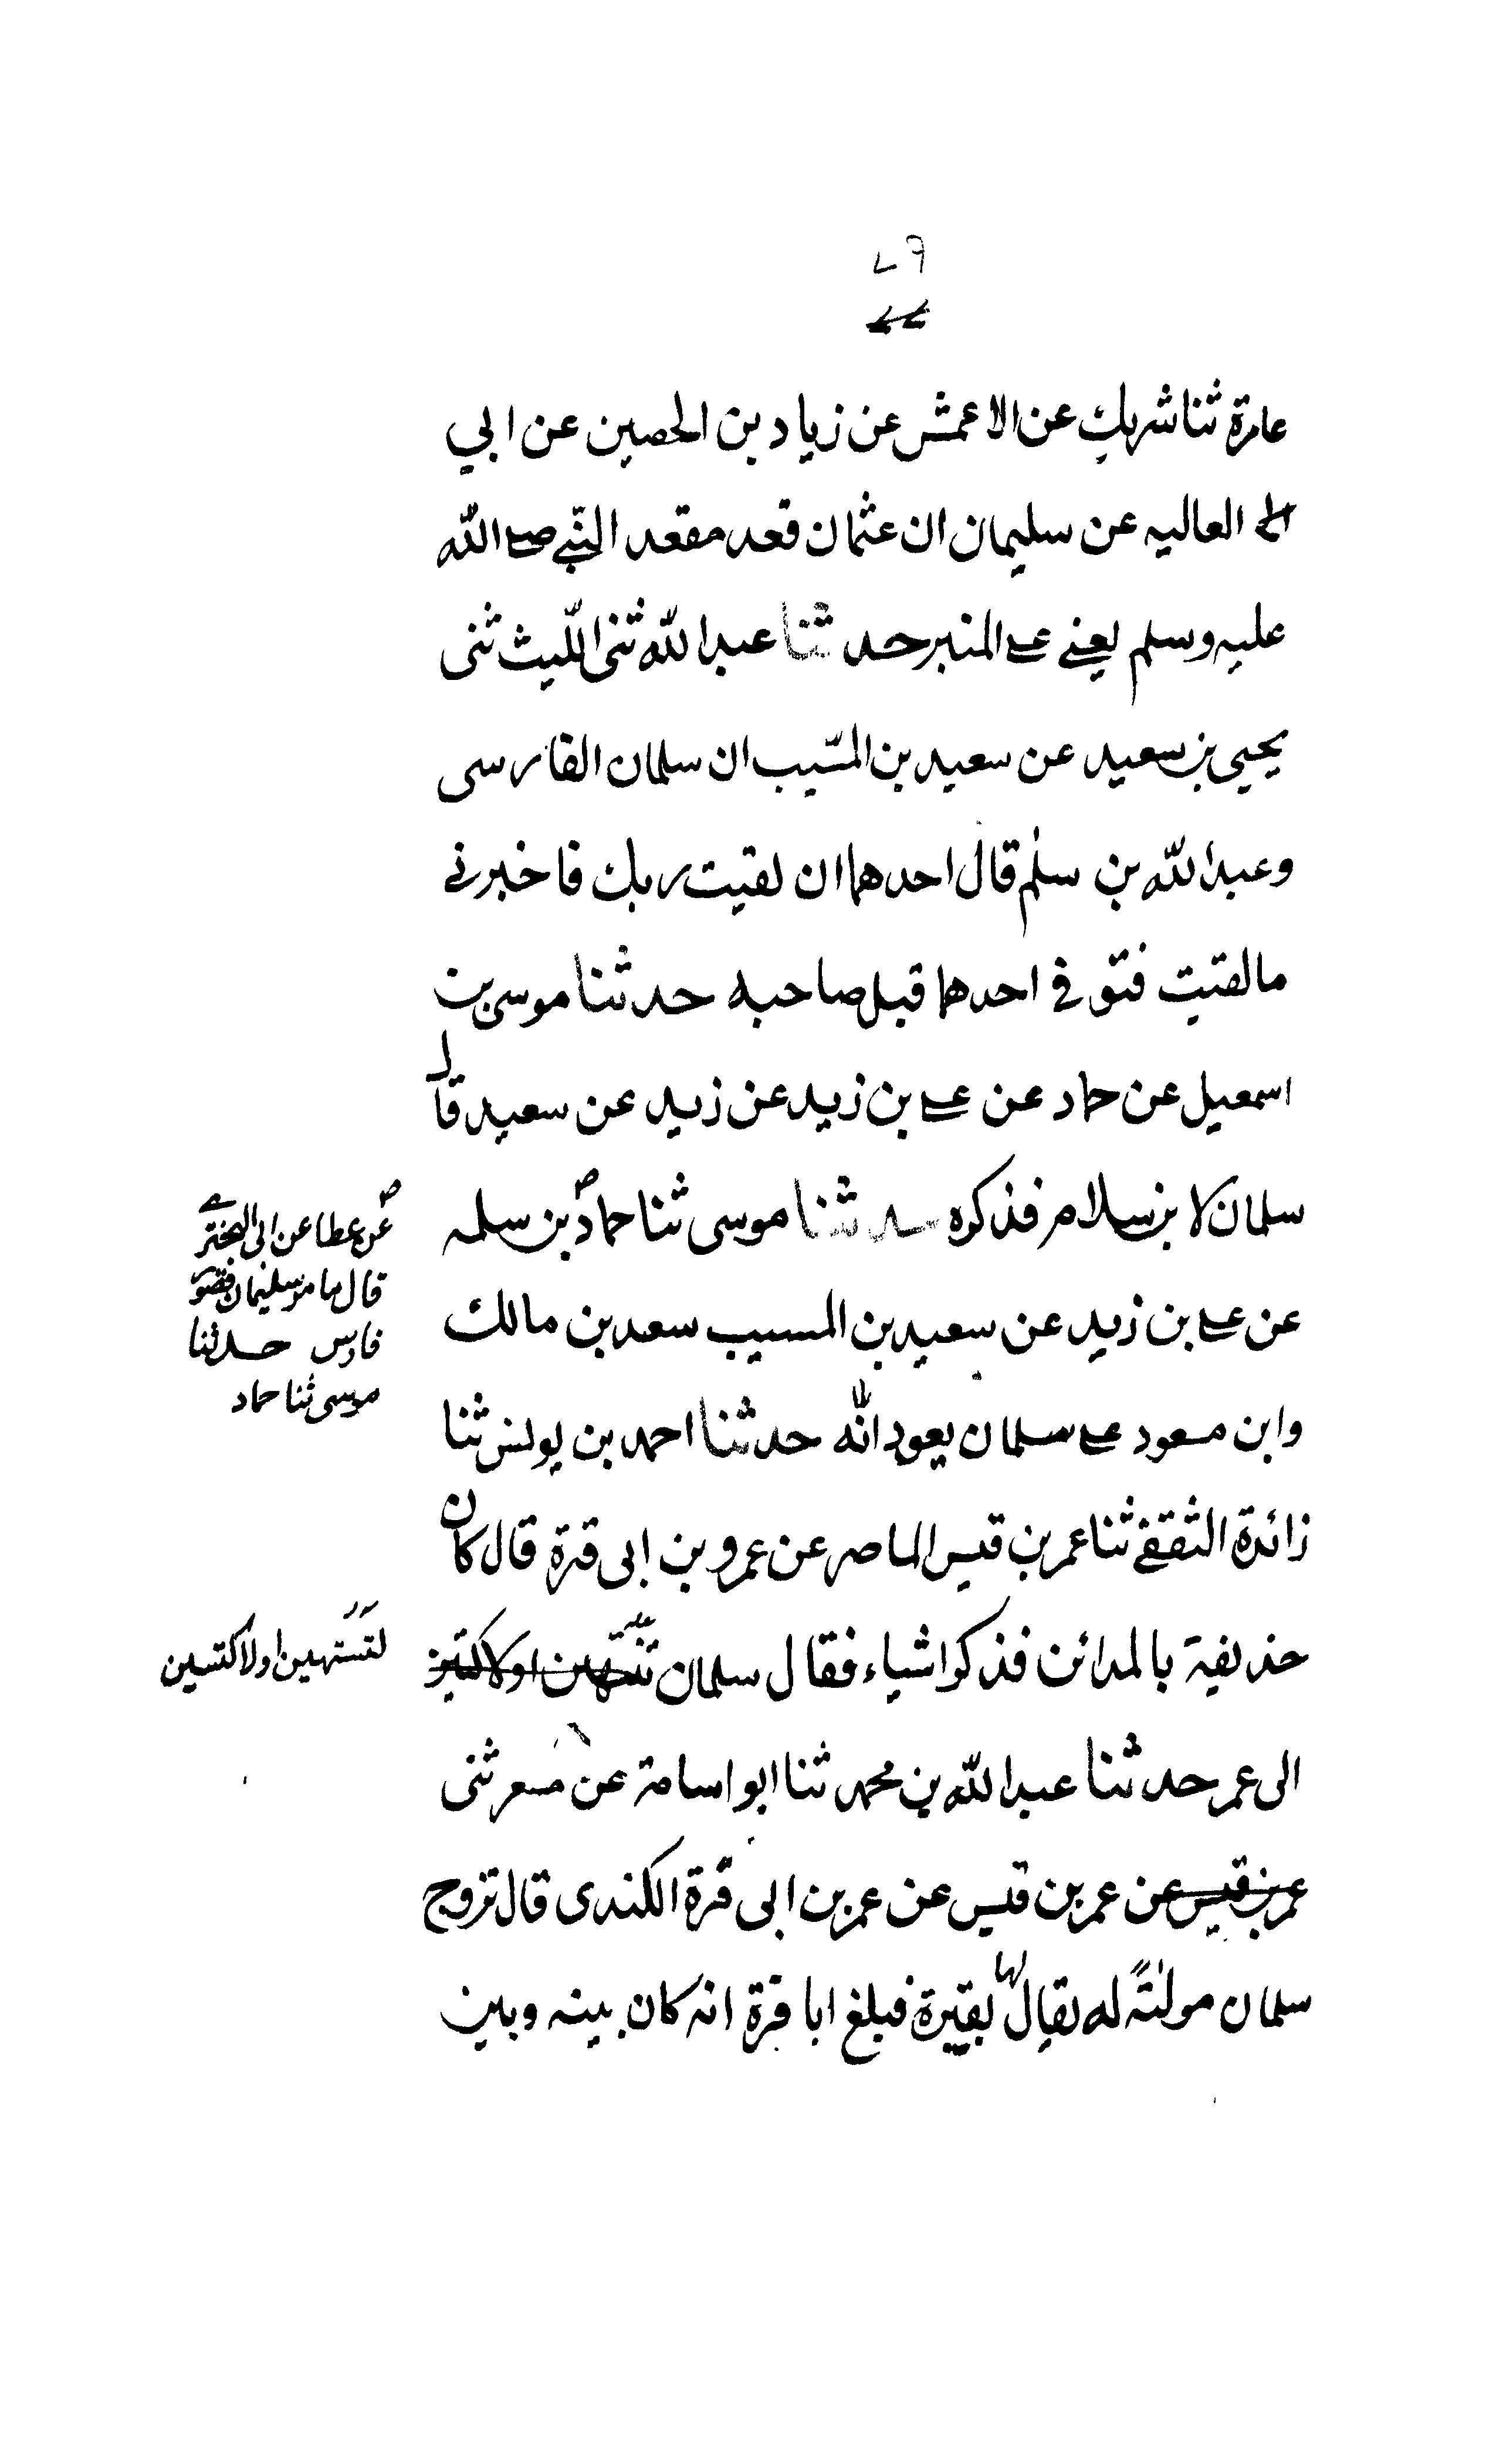 عمارة ثنا شريك عن الاعمش عن زياد بن الحصين عن ابي
العاليه عن سليمان ان عثمان قعد مقعد النبي صلے الله
عليه وسلم يعنے علے المنبر حدثنا عبدالله ثنى الليث ثنى
يحيى بن سعيد عن سعيد بن المسيب ان سلمان الفارسى
وعبدالله بن سلم قال احدهما ان لقيت ربك فاخبرنے
مالقيت فتوفى احدهما قبل صاحبه حدثنا موسى بن
اسمعيل عن حماد عن علے بن زيد عن زيد عن سعيد قال
سلمان لابن سلام فذكره حدثنا موسى ثنا حماد بن سلمه
عن عطا عن ابى البخترے
قال
فارس حدثنا
موسى ثنا حماد
عن علے بن زيد عن سعيد بن المسيب سعد بن مالك
وابن مسعود علے سلمان يعودانه حدثنا احمد بن يونس ثنا
زائدة الثقفے ثنا عمر بن قيس الماصر عن عمرو بن ابى قرة قال كان
حذيفة بالمدائن فذكر اشياء فقال سلمان
لتنتهين اولاكتبن
الى عمر حدثنا عبدالله بن محمد ثنا ابو اسامة عن مسعر ثنى
عمر بن قيس عن عمر بن قيس عن عمر بن ابى قرة الكندى قال تزوج
سلمان مولاة له يقال لها بقيرة فبلغ ابا قرة انه كان بينه وبين